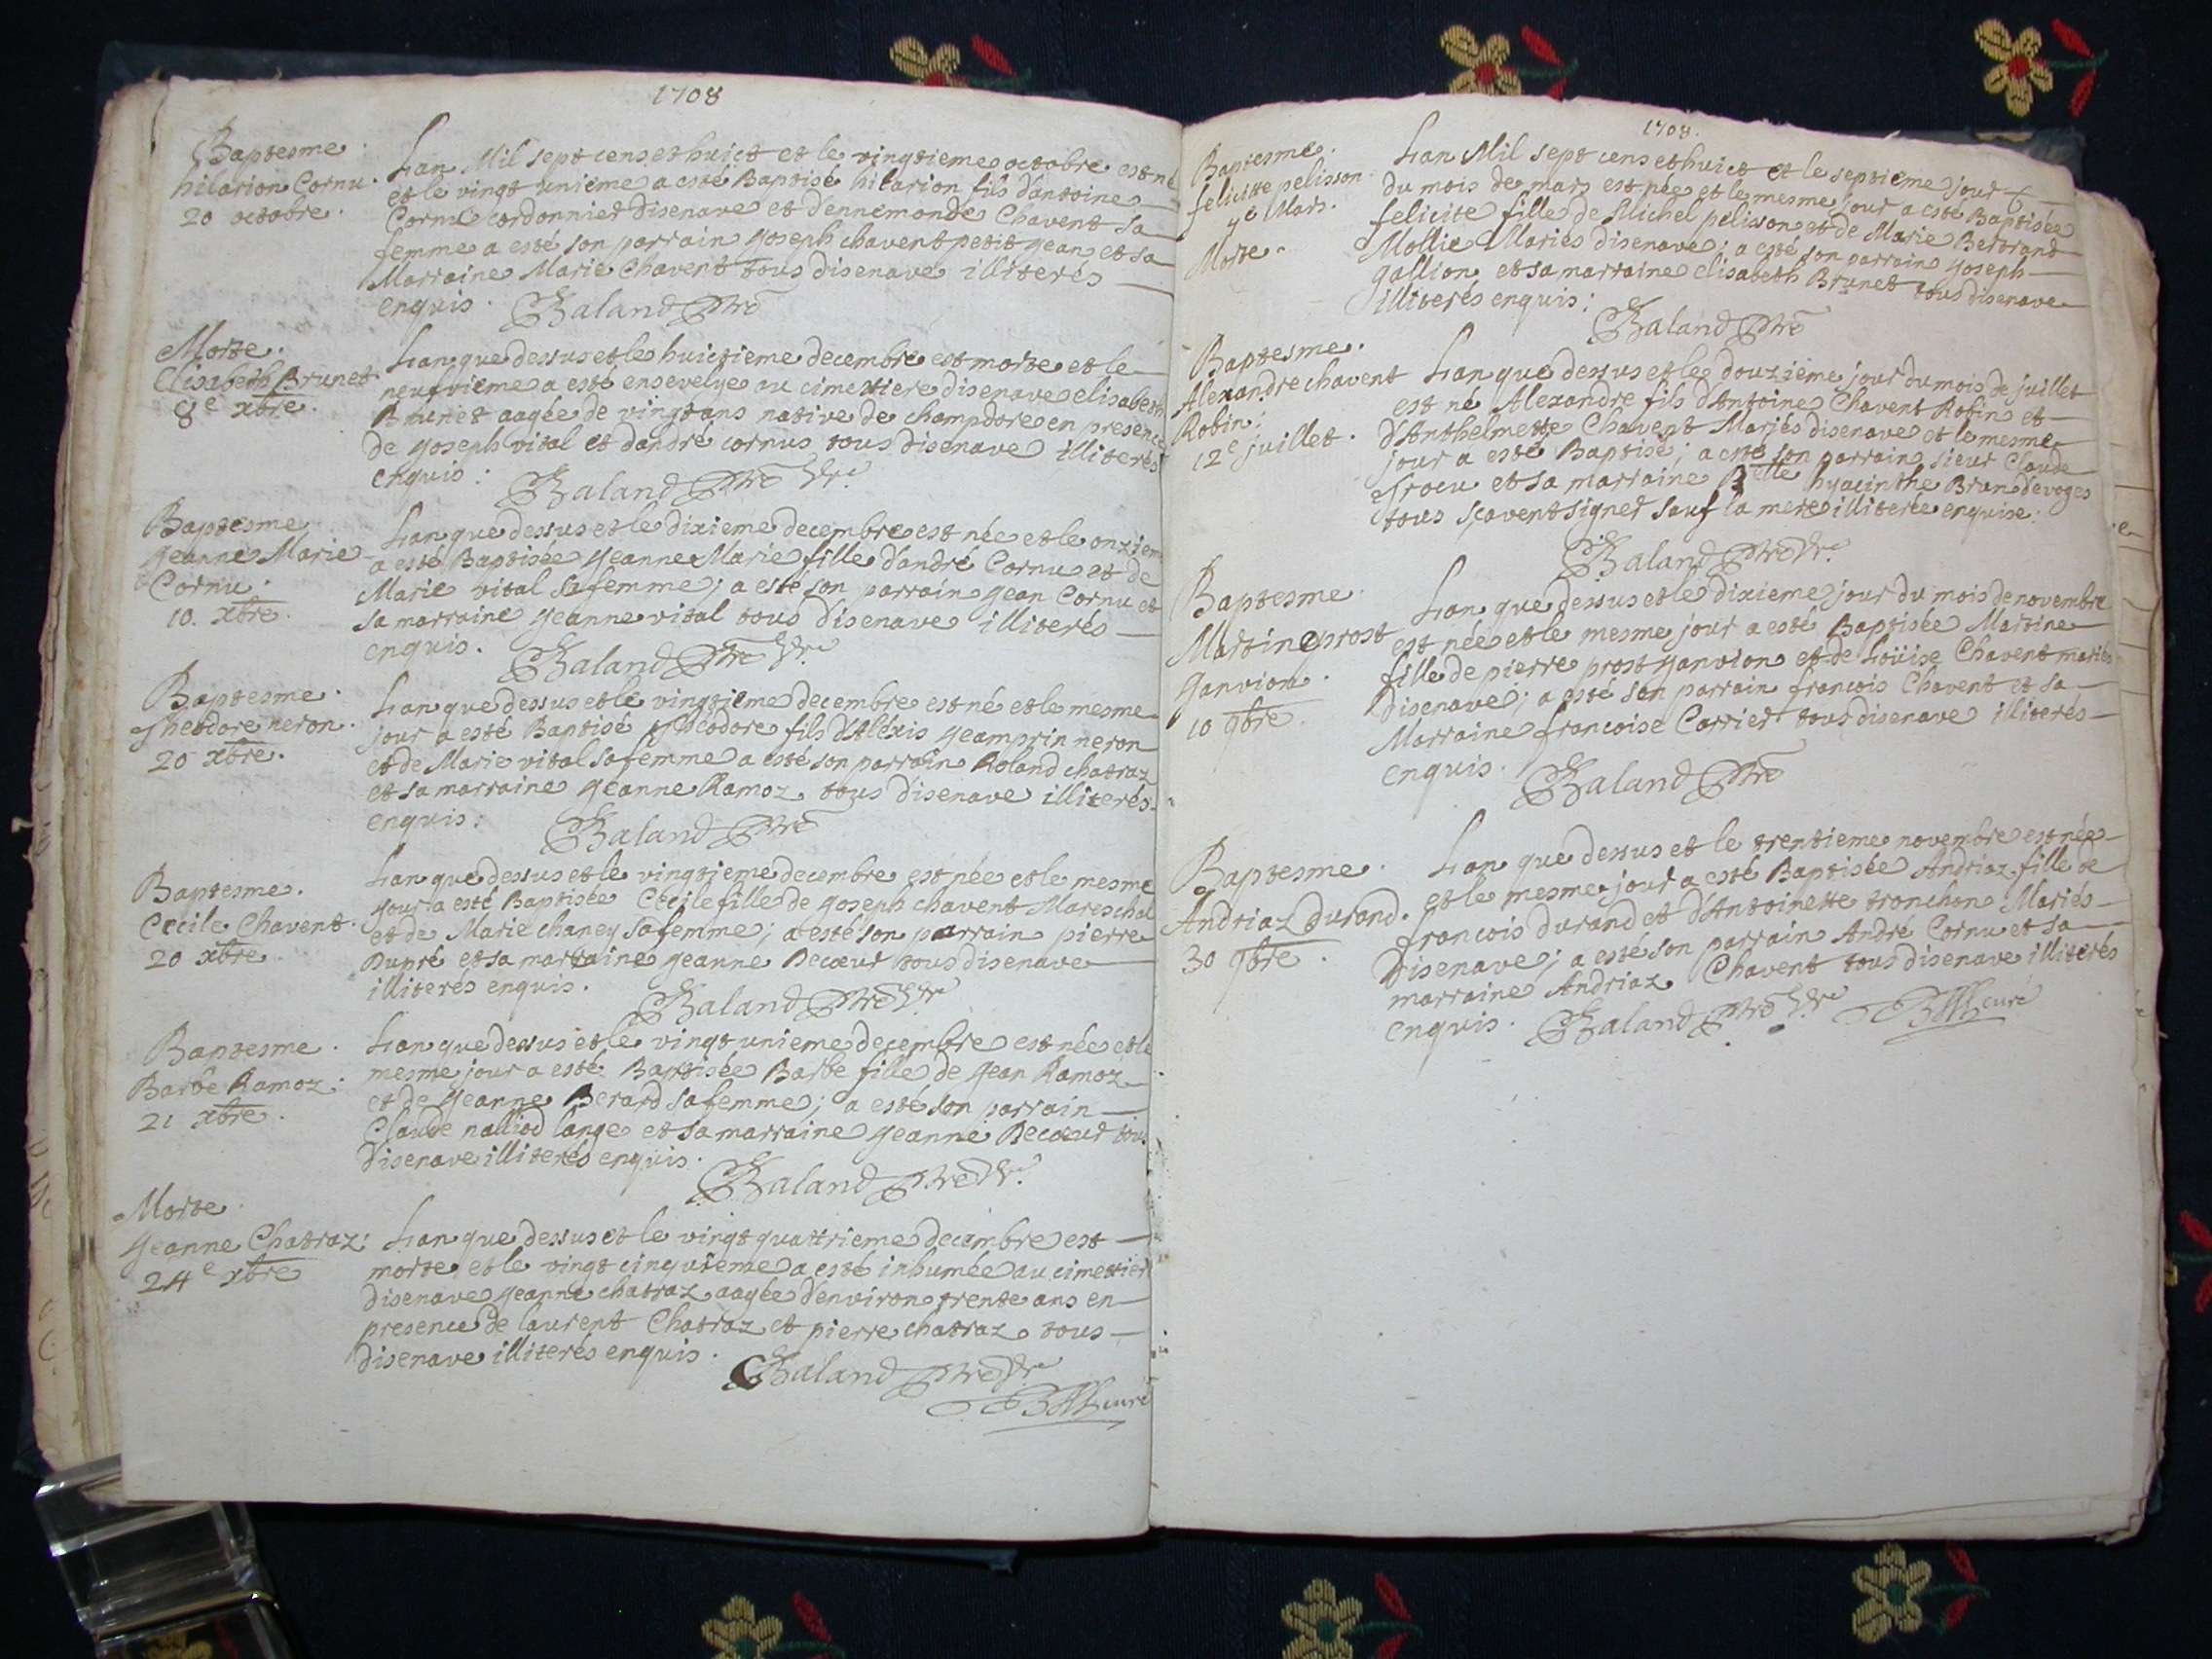 1708
Baptesme
hilarion Cornu.
20 octobre.
Lan Mil sept cens et huict et le vingtieme octobre est né
et le vingt unieme a esté Baptisé hilarion fils d'antoine
Cornu cordonnier disenave et d'ennemonde Chavent sa
femme a esté son parrain Joseph chavent petit Jean et sa
Marraine Marie Chavent tous disenave illiterés
enquis. Baland Ptre
Morte.
Elisabeth Brunet.
8e xbre.
Lan que dessus et le huictieme decembre est morte et le
neufvieme a esté ensevelye au cimettiere disenave elisabeth
Brunet aagée de vingt ans native de champdore en presence
de Joseph vital et d'andré cornus tous disenave illiterés
enquis: Baland Ptre Vre
Baptesme
Jeanne Marie
Cornu.
10. xbre.
Lan que dessus et le dixieme decembre est née et le onziem
a esté Baptisée Jeanne Marie fille d'andré Cornu et de
Marie vital sa femme; a esté son parrain Jean Cornu et
sa marraine Jeanne vital tous disenave illiterés
enquis. Baland Ptre Vre
Baptesme.
Theodore neron.
20 xbre.
Lan que dessus et le vingtieme decembre est né et le mesme
jour a esté Baptisé Theodore fils d'Aléxis Jeamprin neron
et de Marie vital sa femme a esté son parrain Roland chatraz
et sa marraine Jeanne Ramoz tous disenave illiterés
enquis: Baland Ptre
Baptesme.
Cecile Chavent.
20 xbre.
Lan que dessus et le vingtieme decembre est née et le mesme
jour a esté Baptisée Cecile fille de Joseph chavent Mareschal
et de Marie chaney sa femme; a esté son parrain pierre
Dupré et sa marraine Jeanne Decœur tous disenave
illiterés enquis. Baland Ptre Vre
Baptesme.
Barbe Ramoz.
21 xbre.
Lan que dessus et le vingt unieme decembre est née et le
mesme jour a esté Baptisée Barbe fille de Jean Ramoz
et de Jeanne Berard sa femme; a esté son parrain
Claude nalliod lange et sa marraine Jeanne Decœur tous
disenave illiterés enquis. Baland Ptre Vre
Morte.
Jeanne Chatraz:
24e xbre
Lan que dessus et le vingt quattrieme decembre est
morte et le vingt cinquieme a esté inhumée au cimettier
disenave Jeanne chatraz aagée d'environ trente ans en
presence de laurent Chatraz et pierre chatraz tous
disenave illiterés enquis. Baland Ptre Vre
curé
1708.
Baptesme.
felicitte pelisson
7e Mars.
Morte.
Lan Mil sept cens et huict et le septieme jour
du mois de mars est née et le mesme jour a esté Baptisée
felicite fille de Michel pelisson et de Marie Bertrand
Mollie Mariés disenave; a esté son parrain Joseph
gallion et sa marraine elisabeth Brunet tous disenave
illiterés enquis: Baland Ptre
Baptesme.
Alexandre chavent
Robin;
12e juillet.
Lan que dessus et le douzième jour du mois de juillet
est né Alexandre fils d'Antoine Chavent Robin et
d'Anthelmette Chavent Mariés disenave et le mesme
jour a esté Baptisé; a esté son parrain sieur Claude
Trocu et sa marraine Delle hyacinthe Brun devoges
tous sçavent signer sauf la mere illiterée enquise.
Baland Ptre Vre
Baptesme.
Martine prost
Janvion.
10 9bre.
Lan que dessus et le dixieme jour du mois de novembre
est née et le mesme jour a esté Baptisée Martine
fille de pierre prost Janvion et de Loüise Chavent mariés
disenave; a esté son parrain francois Chavent et sa
Marraine francoise Carrier tous disenave illiterés
enquis. Baland Ptre
Baptesme.
Andriaz Durand.
30 9bre.
Lan que dessus et le trentieme novembre est née
et le mesme jour a esté Baptisée Andriaz fille de
francois durand et d'Antoinette tronchon Mariés
disenave; a esté son parrain André Cornu et sa
marraine Andriaz Chavent tous disenave illiterés
enquis. Baland Ptre Vre curé